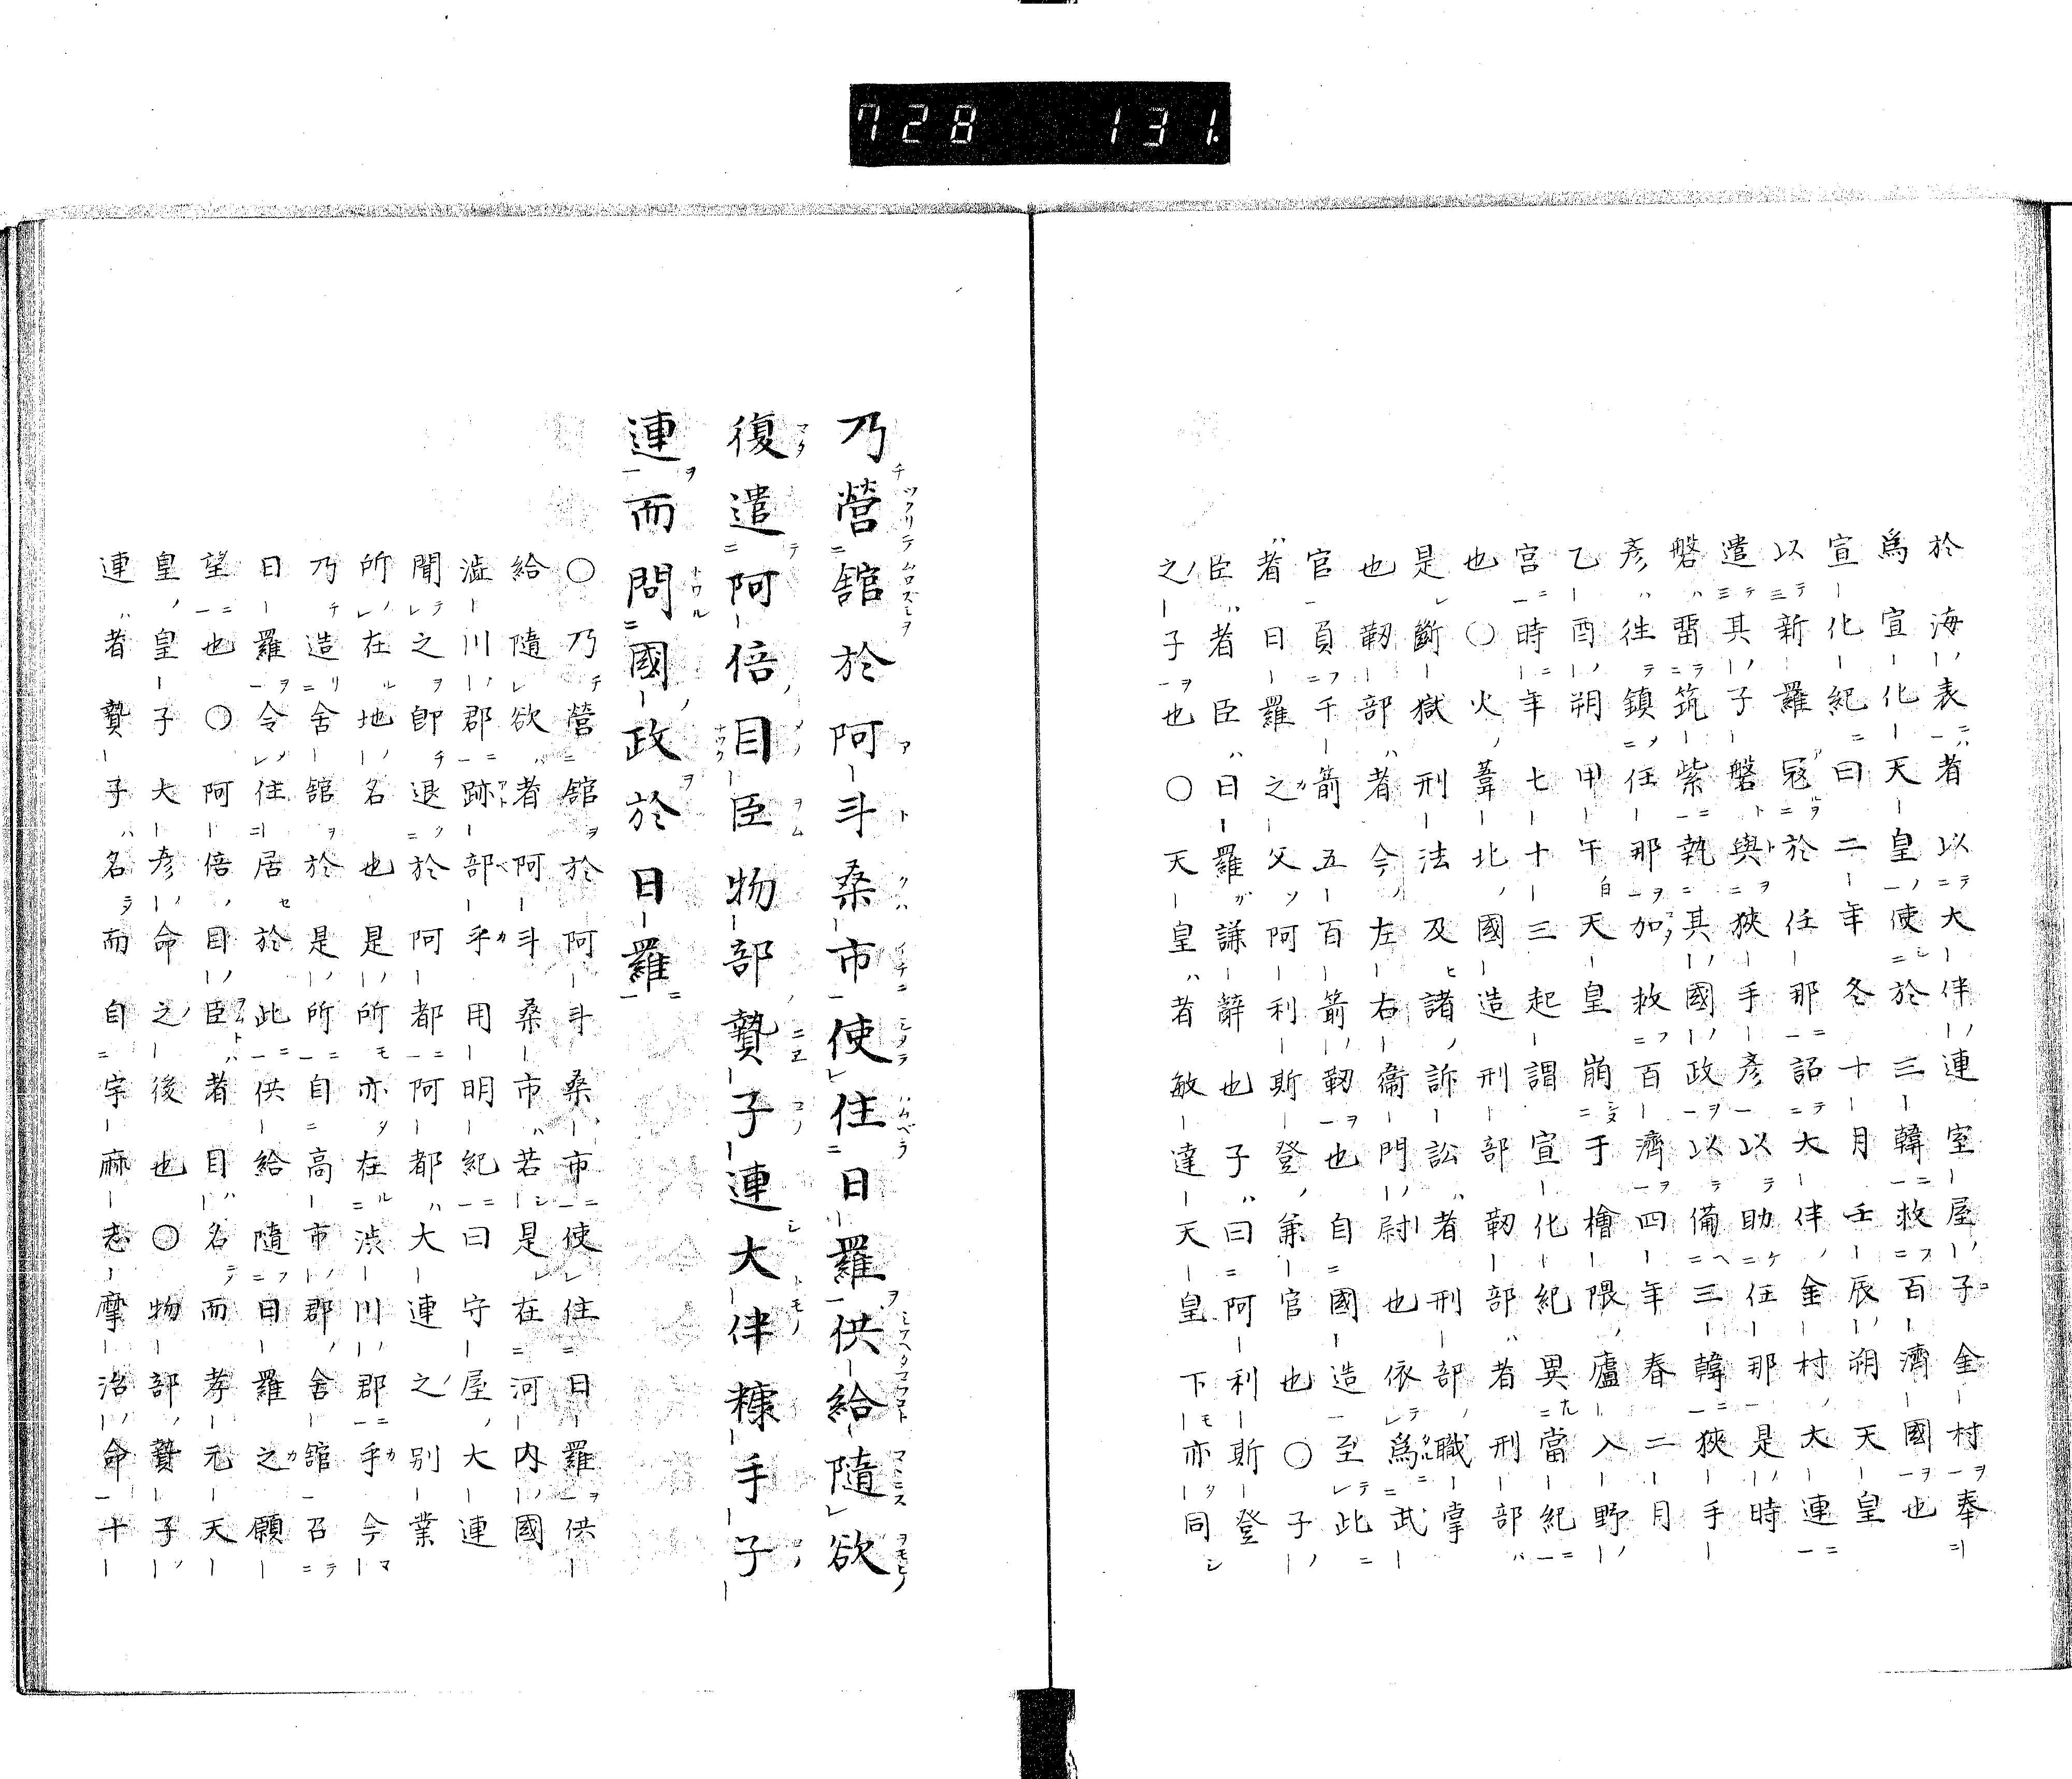 728 131
於海表者以大伴連室屋子金村奉
爲宣化天皇使於三韓救百濟國也
宣化紀曰二年冬十月壬辰朔天皇
以新羅冦於任那詔大伴金村大連
遣其子磐與狹手彦以助任那是時
磐畱筑紫執其國政以備三韓狹手
彦徃鎮任那加救百濟四年春二月
乙酉朔甲午天皇崩于檜隈廬入野
宮時年七十三起謂宣化紀異當紀
也〇火葦北國造刑部靭部者刑部
是斷獄刑法及諸訴訟者刑部職掌
也靭部者今左右衞門尉也依爲武
官負千箭五百箭靭也自國造至此
者日羅之父阿利斯登兼官也〇子
臣者臣日羅謙辭也子曰阿利斯登
之子也〇天皇者敏達天皇下亦同
乃營舘於阿斗桑市使住日羅供給隨欲
復遣阿倍目臣物部贄子連大伴糠手子
連而問國政於日羅
〇乃營舘於阿斗桑市使住日羅供
給隨欲者阿斗桑市若是在河内國
澁川郡跡部乎用明紀曰守屋大連
聞之卽退於阿都阿都大連之别業
所在地名也是所亦在渋川郡乎今
乃造舍舘於是所自高市郡舍舘召
日羅令住居於此供給隨日羅之願
望也〇阿倍目臣者目名而孝元天
皇皇子大彦命之後也〇物部贄子
連者贄子名而自宇麻志摩治命十